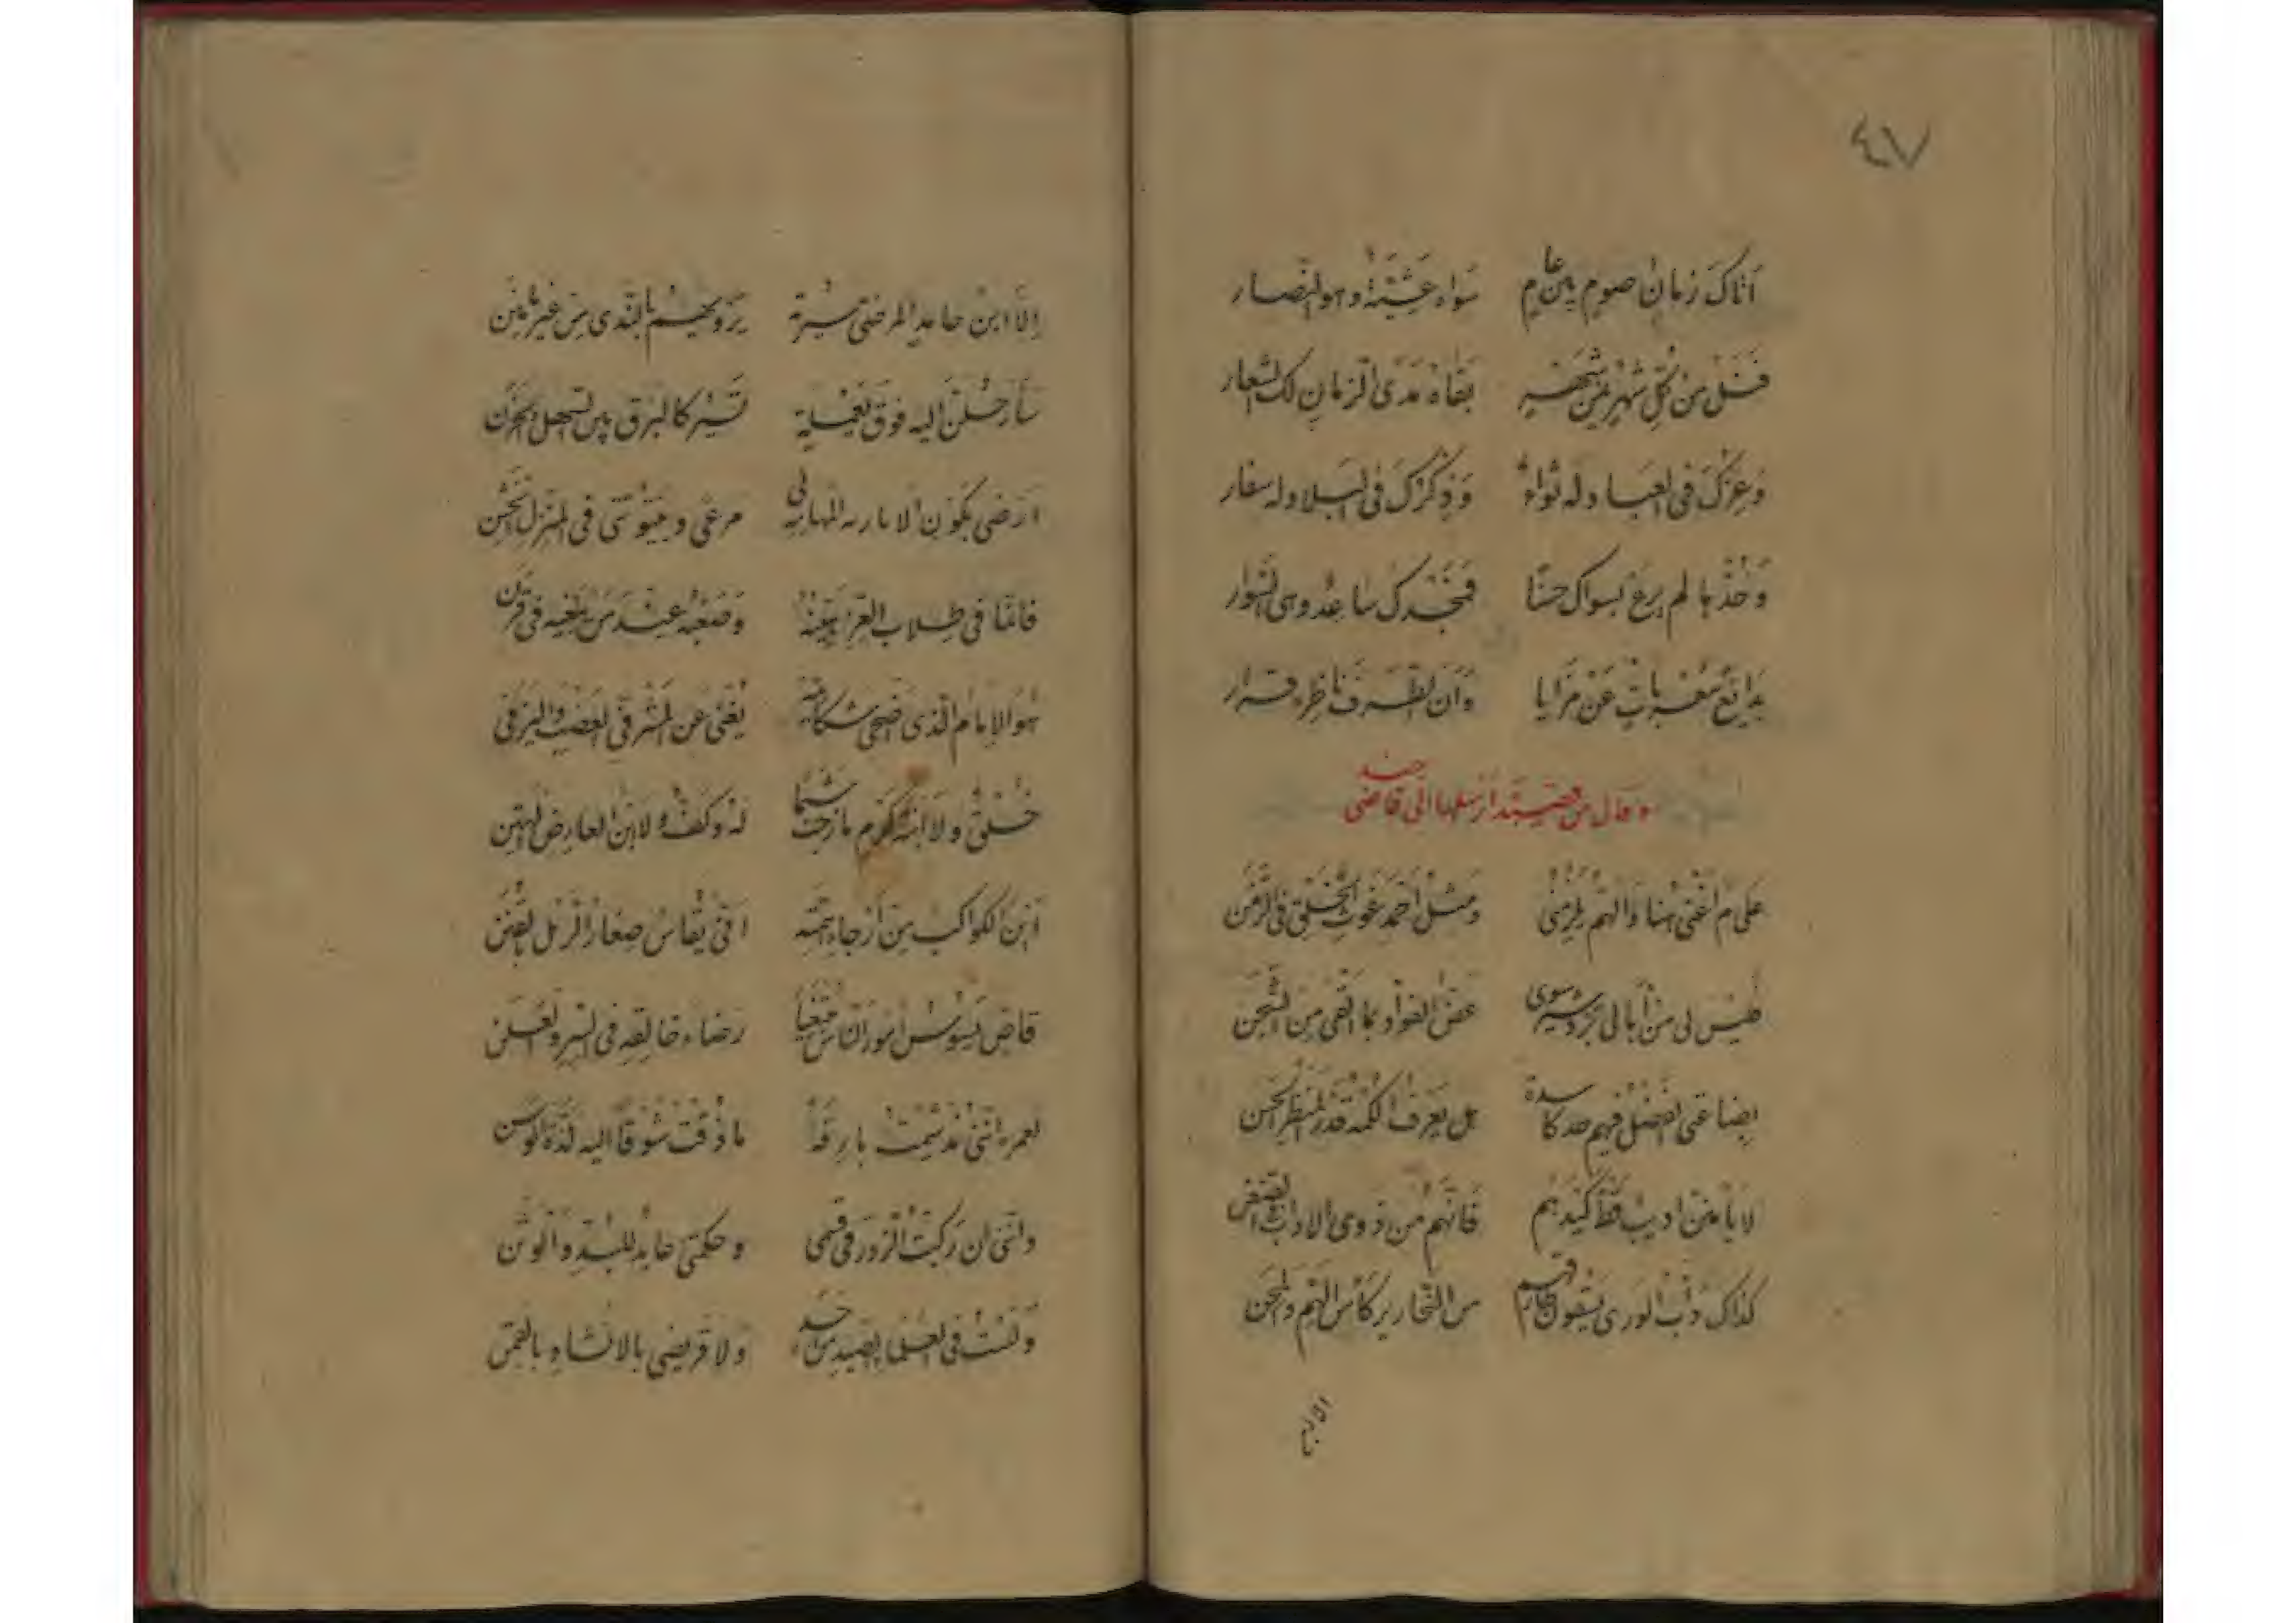 ٤٧
أتاك زمان صوم بين عام سواه عشية وهو النضار
فنل من كل شهر من شهر بقاه مدى الزمان لك الشعار
وعزك في العباد له ثواء وذكرك في البلاد له سفار
وخذها لم يرع بسواك حسنا فمجدك ساعد وهي السوار
بدايع معربات عن مزايا وأن الطرف ناظره قرار
وقال من قصيدة أرسلها الى قاضي جند
علام أغضي هنا والهم يلزمني ومثل أحمد غوث الخلق في الزمن
فليس لي من أبالي سوى عض الفؤاد بما ألقى من الشجن
بضاعتي الفضل فيهم جد كاسدة هل يعرف الكمه قدر المنظر الحسن
لا يأمنن أديب قط كيدهم فانهم من ذوي الاداب في ضغن
كذاك دأب الورى يسقون من النحارير كأس الهم والمحن
الا ابن
إلا ابن حامد المرضي سيرة يرويهم بالندى من غير منن
سأرحلن اليه فوق يعملة تسير كالبرق بين السهل والحزن
أرضى بكون الامارية المهابة لي مرعى ومثوى في المنزل الخشن
فانما في طلاب العز وصعبه عند من يبغيه في قرن
هو الإمام الذي أضحى يغني عن المشرفي العضب واليزني
خلق ولا ابنة كرم مازجت شبما له وكف ولا ابن العارض الهتن
أين الكواكب من أرجاء همته أنى يقاس صغار الرمل بالقنن
قاض يسوس أمور الناس مبتغيا رضاء خالقه في السر والعلن
لعمره انني مذ شمت بارقه ما ذقت شوقا اليه لذة الوسن
وانني ان ركبت الزور في قسمي وحكمتي عابد للبد والوثن
ولست في العلما بالصيد من أحد ولا قريضي بالانشاء بالقمن